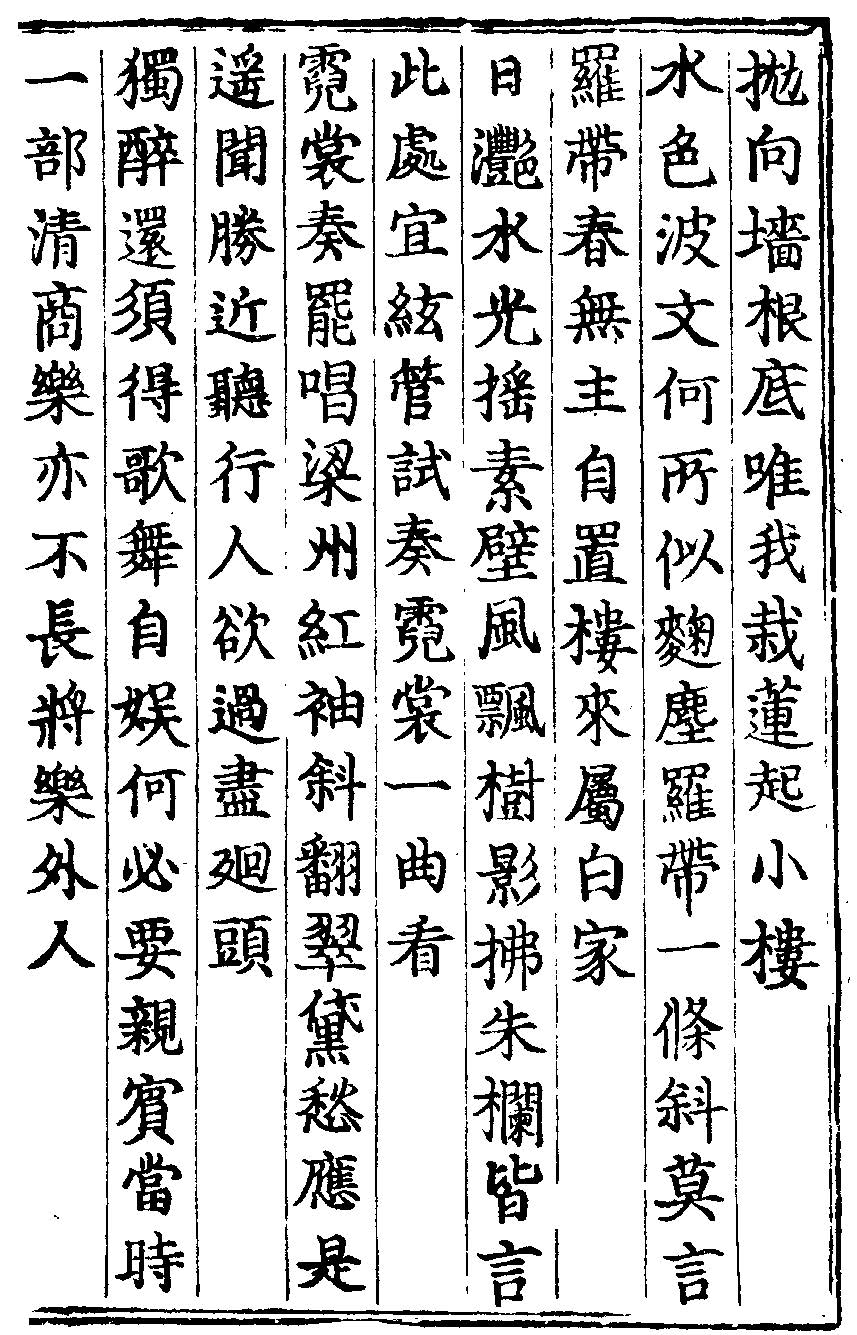 拋向墻根底唯我栽蓮起小樓
水色波文何所似麴塵羅帶一條斜莫言
羅帶春無主自置樓來屬白家
日灔水光摇素壁風飄樹影拂朱欄皆言
此處宜絃管試奏霓裳一曲看
霓裳奏罷唱梁州紅袖斜翻翠黛愁應是
遥聞勝近聽行人欲過盡廻頭
獨醉還須得歌舞自娛何必要親賓當時
一部清商樂亦不長將樂外人